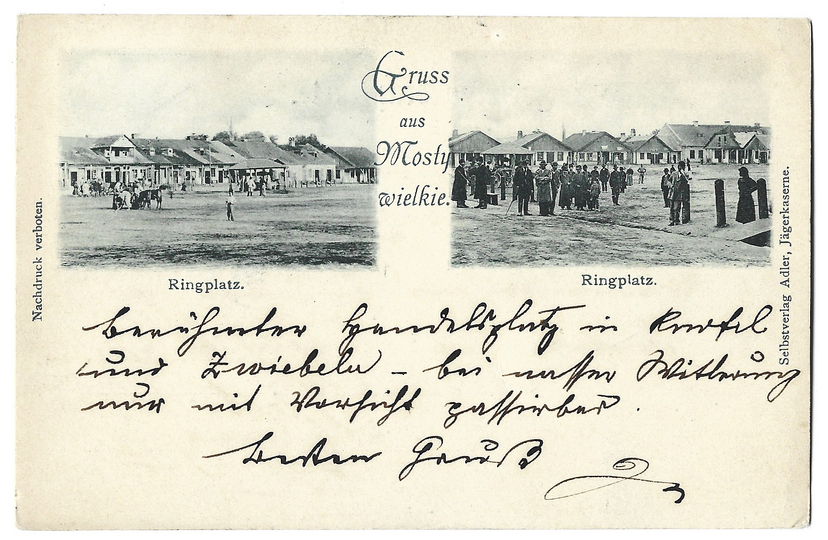 Gruss
aus
Mosty
wielkie.
Ringplatz.
Ringplatz.
Nachdruck verboten.
Selbstverlag Adler, Jägerkaserne.
berühmter Handelsplatz in
und Zwiebeln – bei nasser Witterung
nur mit Vorsicht passirbar.
besten Gruß